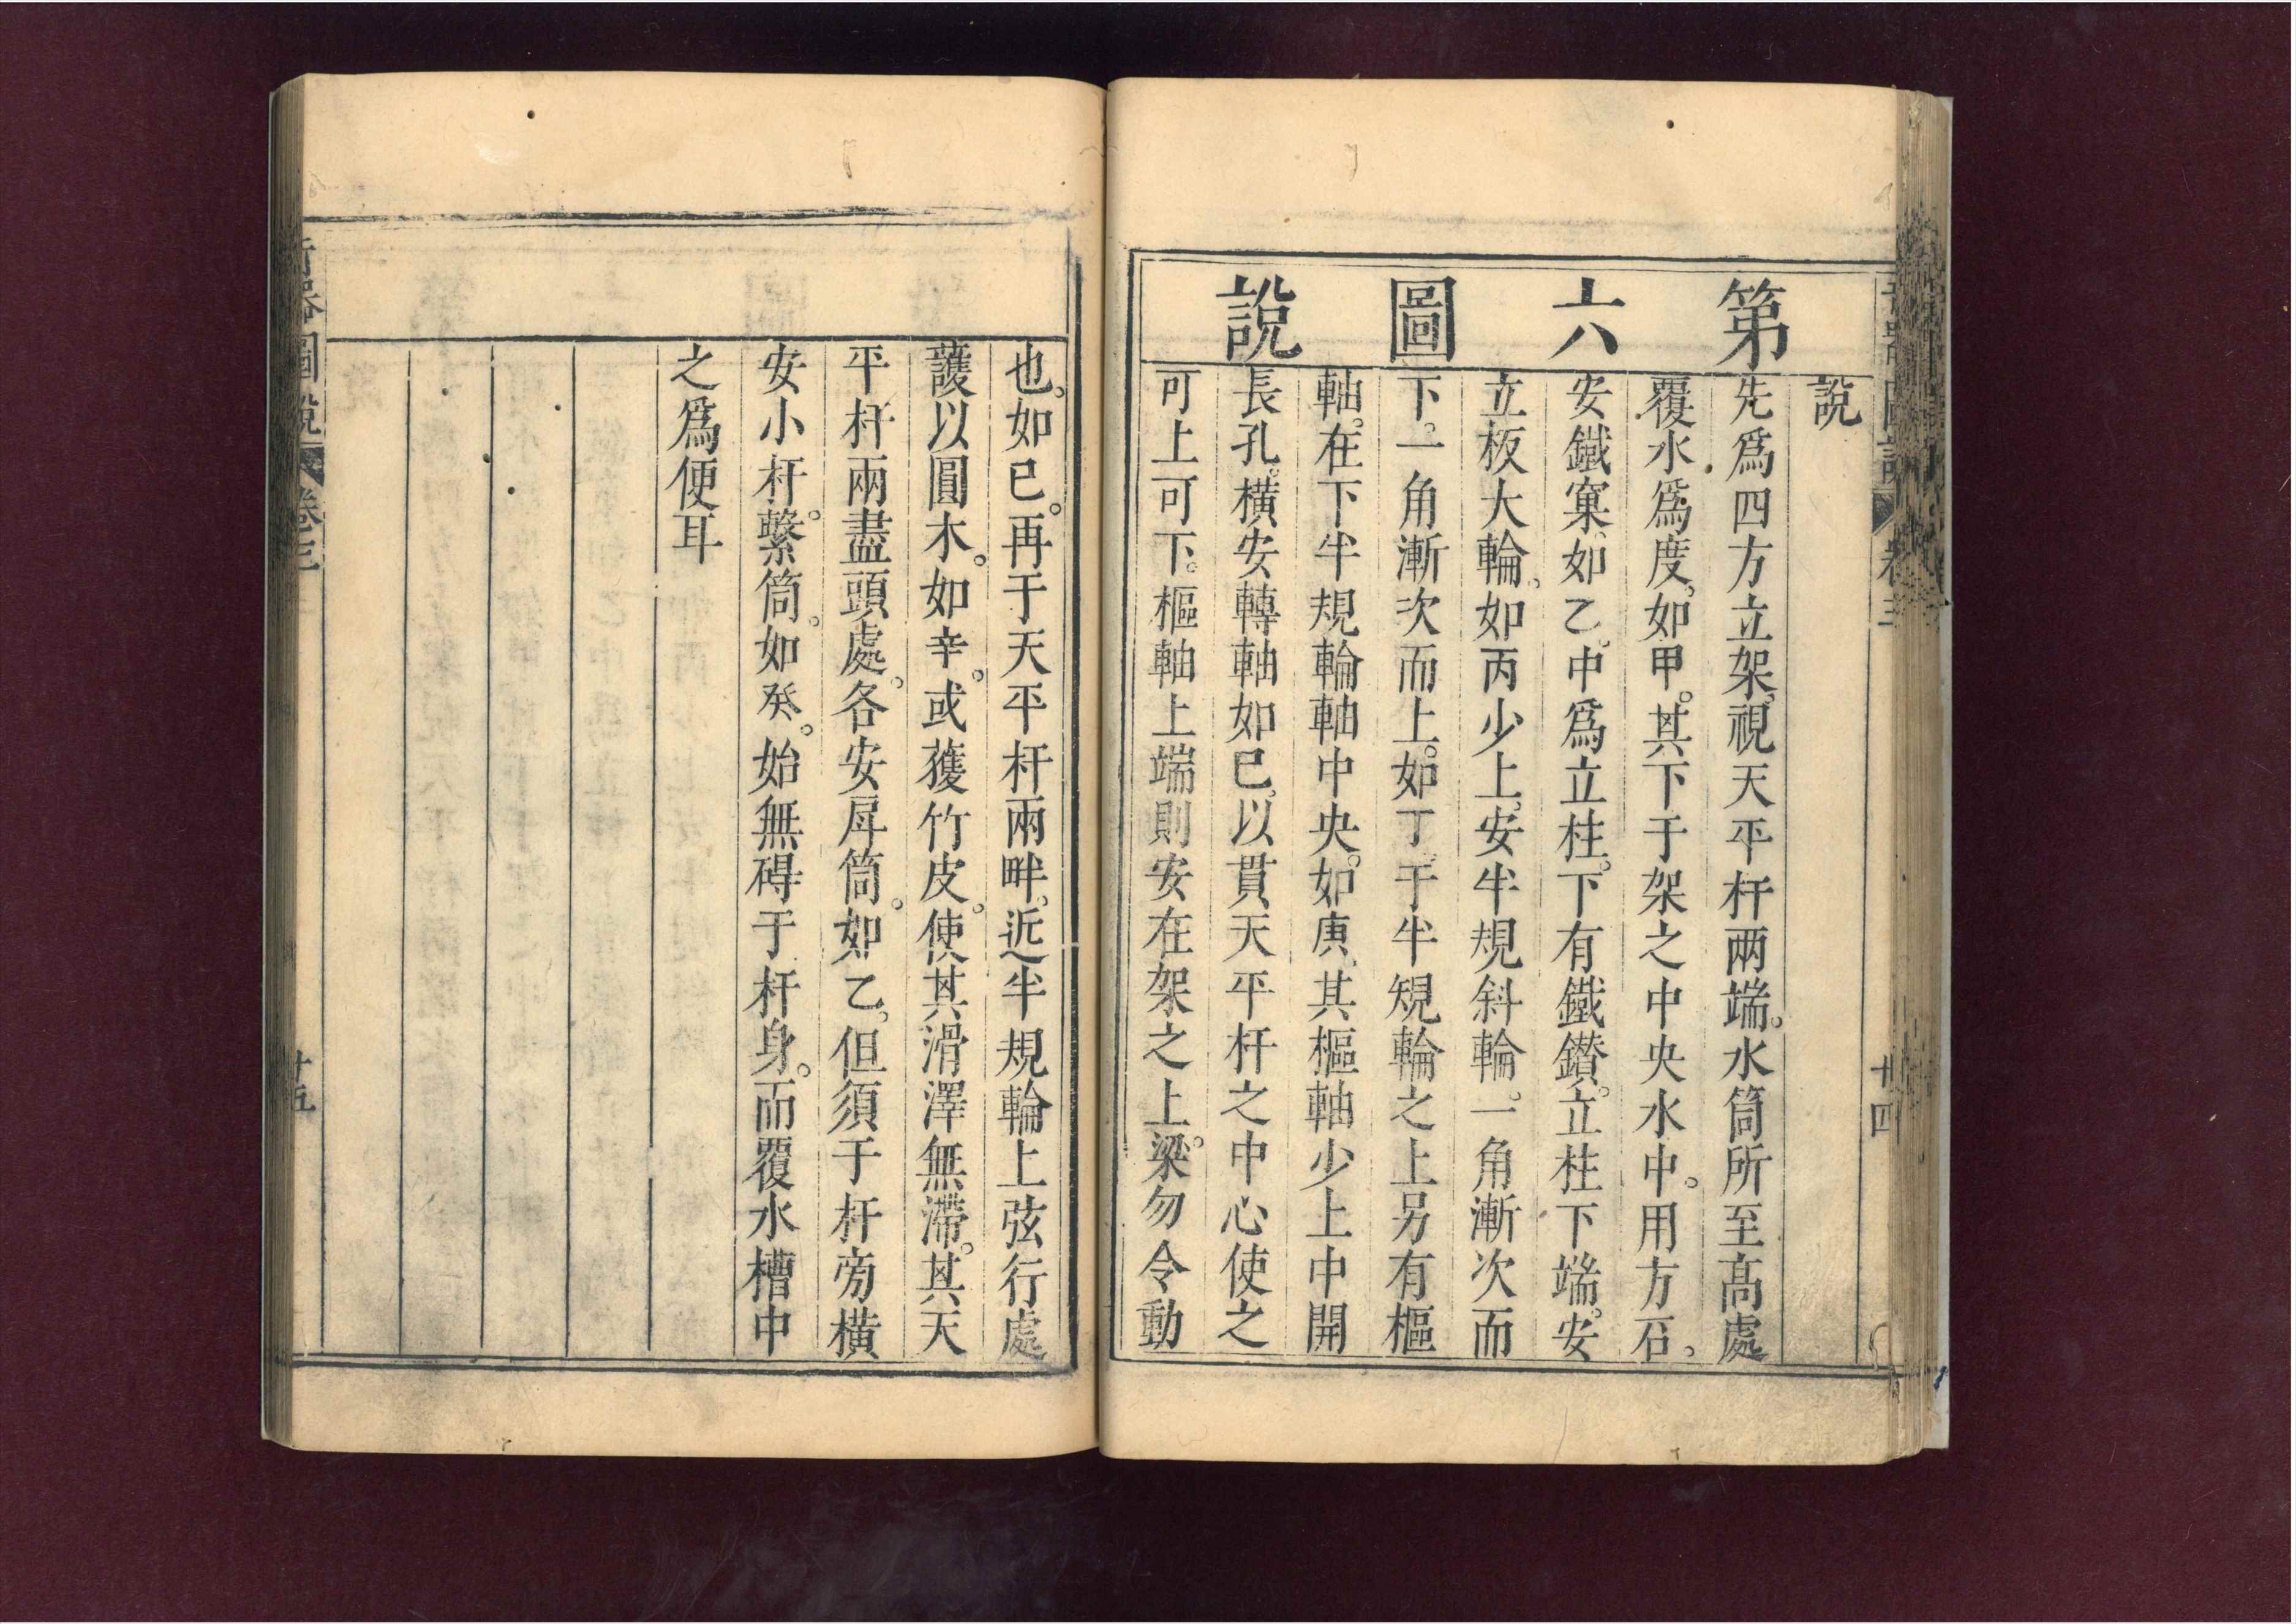 第六圖說
說
先爲四方立架。視天平杆兩端。水筒所至高處
覆水爲度。如甲。其下于架之中央水中。用方石。
安鐵窠。如乙。中爲立柱。下有鐵鑚。立柱下端。安
立板大輪。如丙少上。安半規斜輪。一角漸次而
下。一角漸次而上。如丁。于半規輪之上另有樞
軸。在下半規輪軸中央。如庚。其樞軸少上中開
長孔。橫安轉軸如巳。以貫天平杆之中心使之
可上可下。樞軸上端則安在架之上梁。勿令動
卷三
十四
也。如巳。再于天平杆兩畔。近半規輪上弦行處
護以圓木。如辛。或獲竹皮。使其滑澤無滯。其天
平杆兩盡頭處。各安戽筒。如乙。但須于杆旁橫
安小杆。繫筒。如癸。始無碍于杆身。而覆水槽中
之爲便耳
奇器圖說 卷三
十五